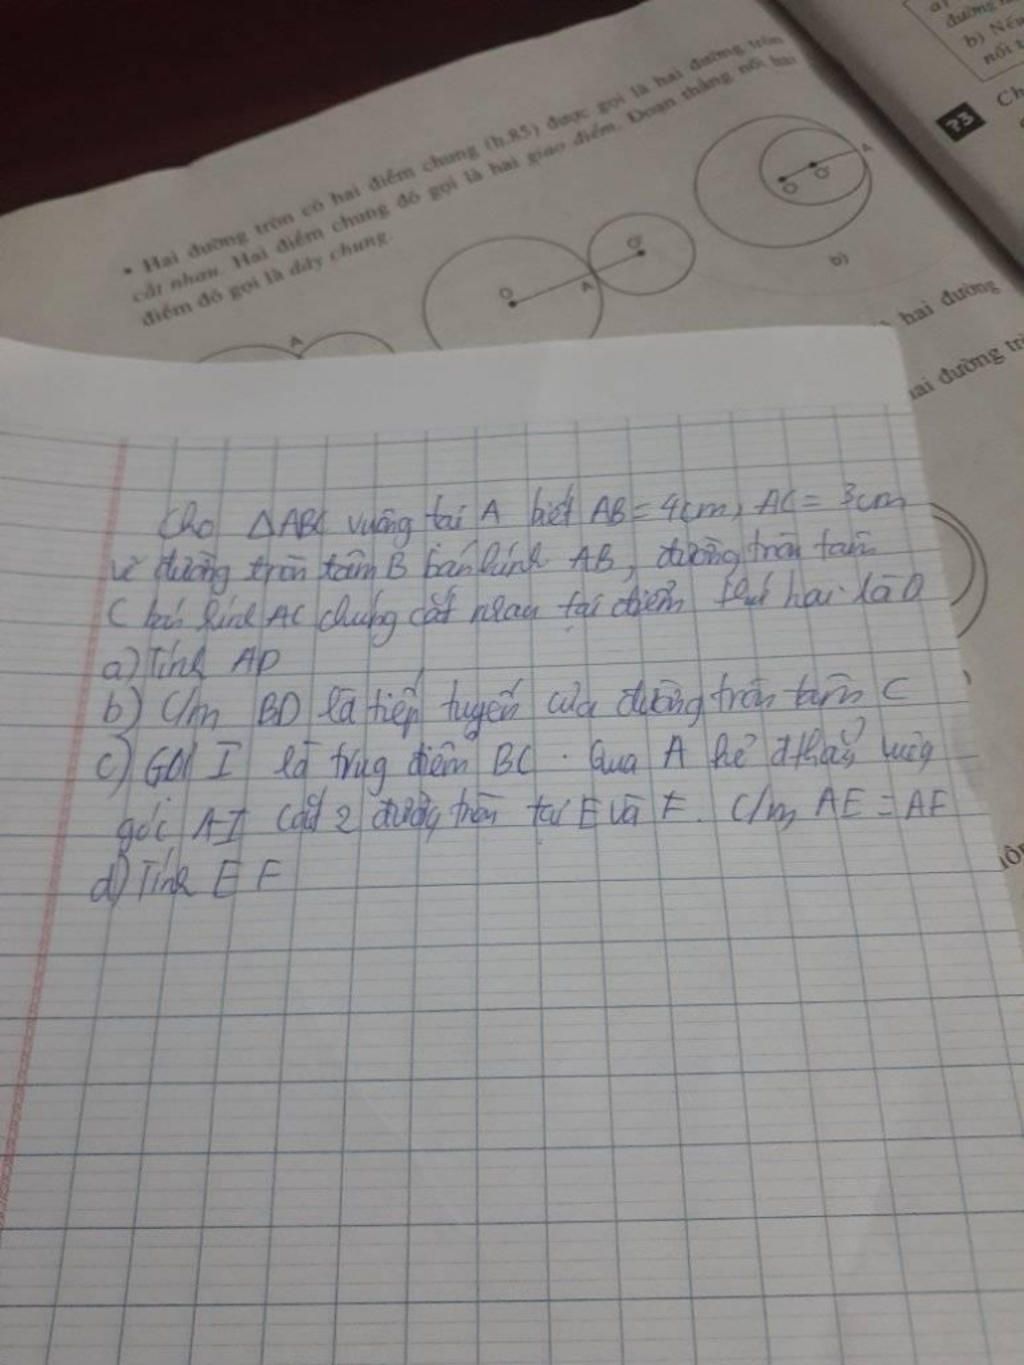 • Hai đường tròn có hai điểm chung (h.85) được gọi là hai đường tròn
cắt nhau. Hai điểm chung đó gọi là hai giao điểm. Đoạn thẳng nối hai
điểm đó gọi là dây chung.
A
O
A
O'
O
O'
A
b)
đường
b) Nếu
nối
?3
Ch
hai đường
hai đường tr
Cho ΔABC vuông tại A biết AB = 4cm, AC = 3cm
vẽ đường tròn tâm B bán kính AB, đường tròn tâm
C bán kính AC chúng cắt nhau tại điểm thứ hai là D
a) Tính AD
b) C/m BD là tiếp tuyến của đường tròn tâm C
c) Gọi I là trug điểm BC. Qua A kẻ đthẳg vuôg
góc AI cắt 2 đường tròn tại E và F. C/m AE = AF
d) Tính EF